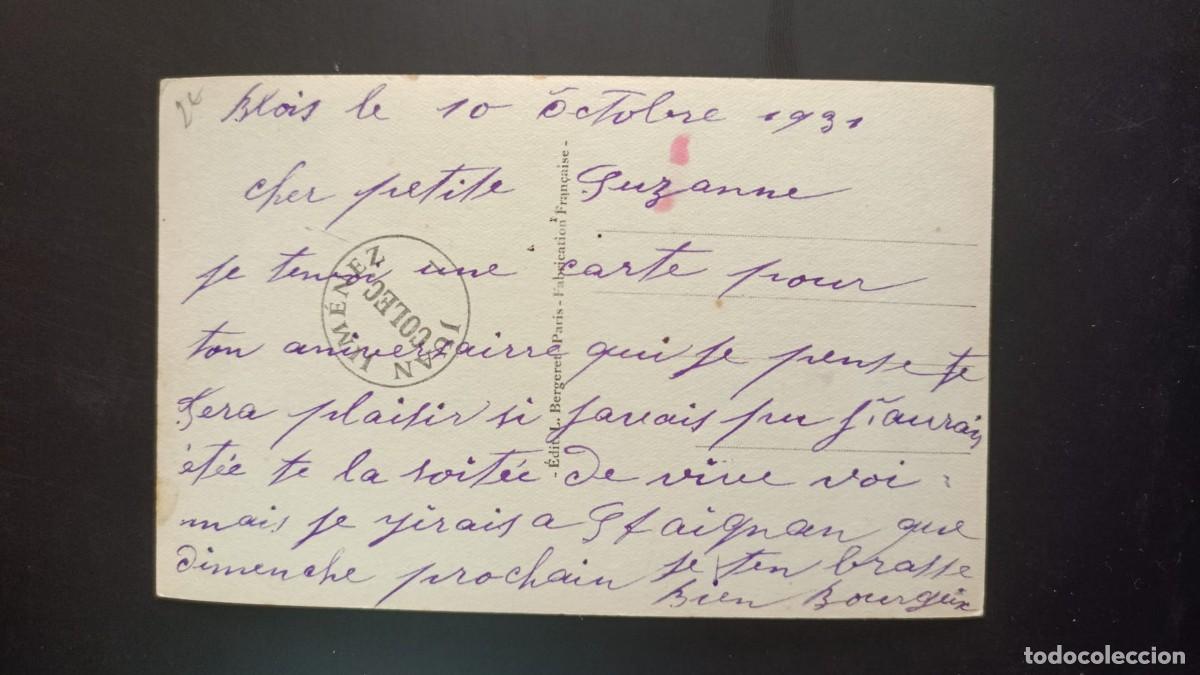 24
Blois le 10 Octobre 1931
cher petite Suzanne
je tenvoi une carte pour
ton aniversairre qui je pense te
fera plaisir si javais pu j'aurai
étée te la soitée de vive voi
mais je yirais a St aignan que
dimenche prochain je ten brasse
Bien Bourgeix
- Édit. L. Bergeret, Paris - Fabrication Française -
JUAN JIMÉNEZ
COLECC
todocoleccion